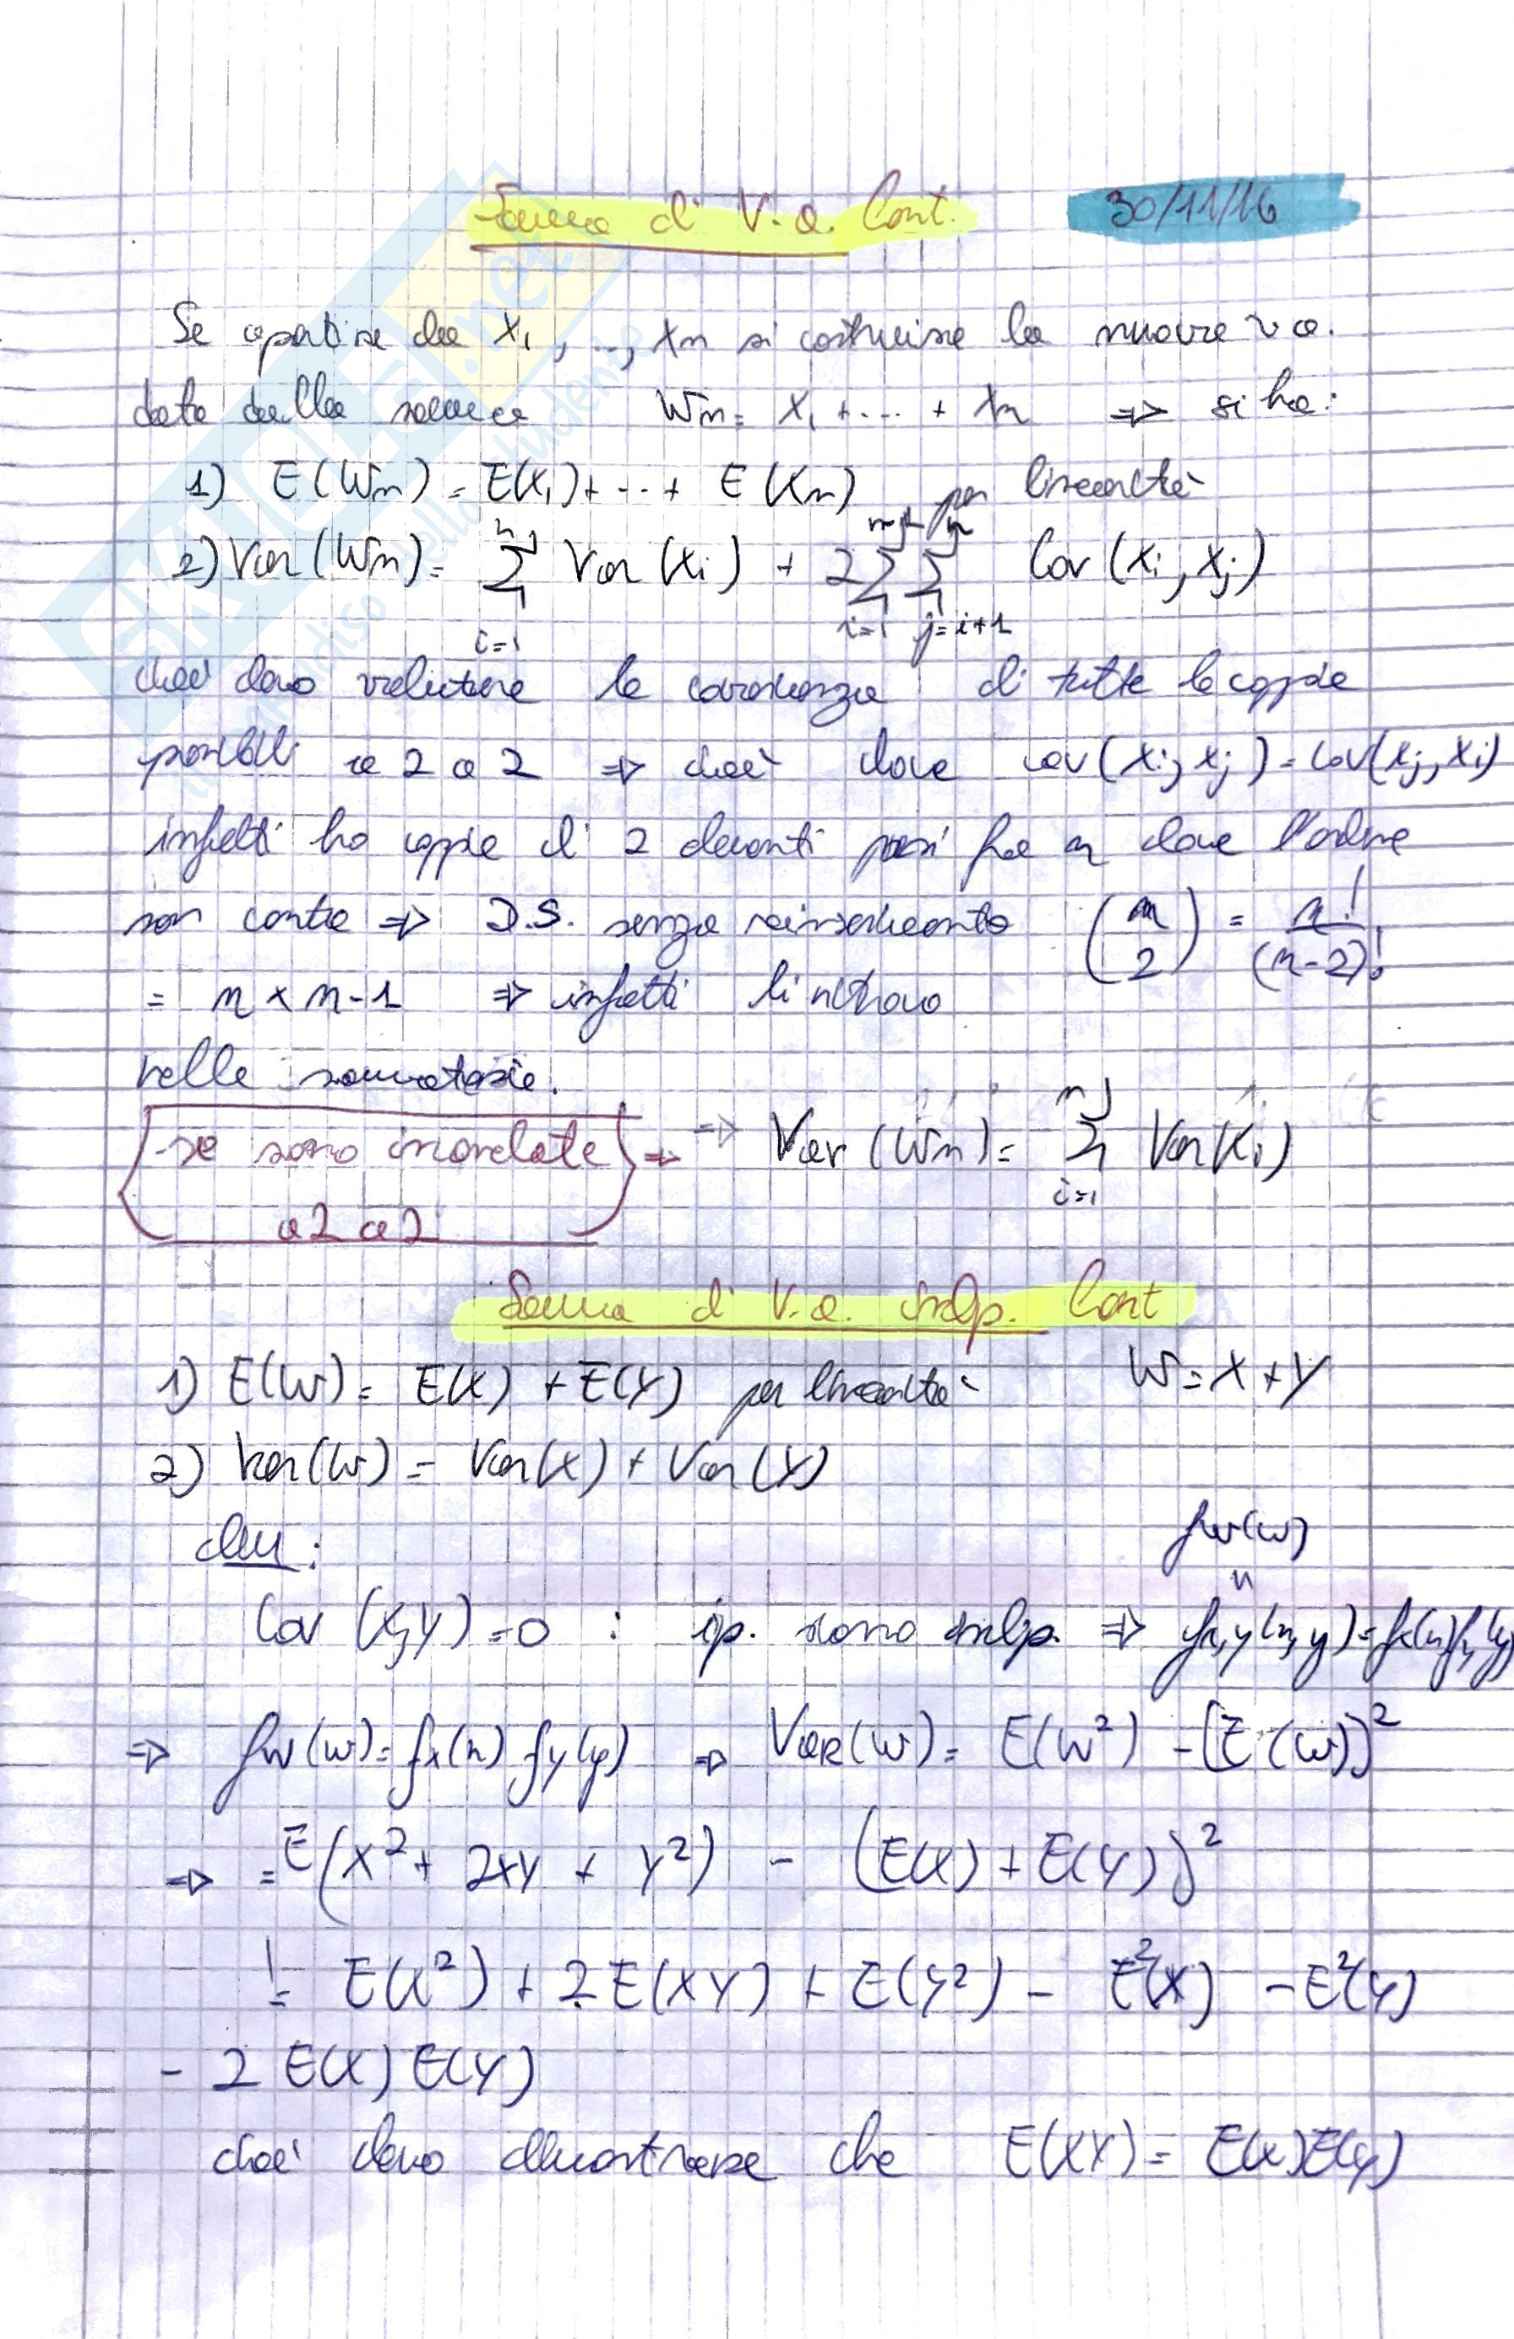 Somma di V.a. Cont. 30/11/16
Se a partire da X₁, ..., Xn si costruisce la nuova v a.
data dalla somma Wn = X₁ + ... + Xn ⇒ si ha:
1) E(Wn) = E(X₁) + ... + E(Xn) per linearità
2) Var(Wn) = Σ_{i=1}^{n} Var(Xi) + 2 Σ_{i=1}^{n-1} Σ_{j=i+1}^{n} Cov(Xi, Xj)
cioè devo valutare la covarianza di tutte le coppie
possibili a 2 a 2 ⇒ cioè dove cov(Xi, Xj) = Cov(Xj, Xi)
infatti ho coppie di 2 elementi presi fra n dove l'ordine
non conta ⇒ D.S. senza reinserimento (n 2) = n!/(n-2)!
= n × n-1 ⇒ infatti li ritrovo
nelle sommatorie.
se sono incorrelate ⇒ ⇒ Var(Wn) = Σ_{i=1}^{n} Var(Xi)
a 2 a 2
Somma di V.a. indip. Cont
1) E(W) = E(X) + E(Y) per linearità W = X + Y
2) Var(W) = Var(X) + Var(Y)
dim: fw(w)
"
Cov(X,Y) = 0 : ip. sono indip. ⇒ fx,y(x,y) = fx(x)fy(y)
⇒ fw(w) = fx(x) fy(y) ⇒ VaR(W) = E(W²) - (E(W))²
⇒ = E(X² + 2XY + Y²) - (E(X) + E(Y))²
= E(X²) + 2E(XY) + E(Y²) - E²(X) - E²(Y)
- 2 E(X) E(Y)
cioè devo dimostrare che E(XY) = E(X)E(Y)
SKUOLA.net
il paradiso dello studente